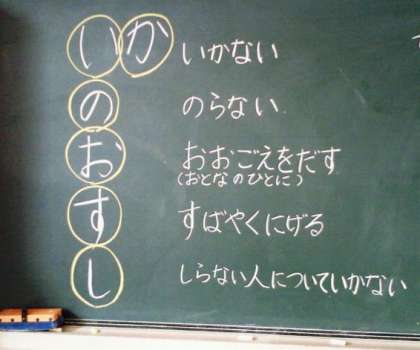 いか いかない
の のらない
お おおごえをだす
(おとなのひとに)
す すばやくにげる
し しらない人についていかない